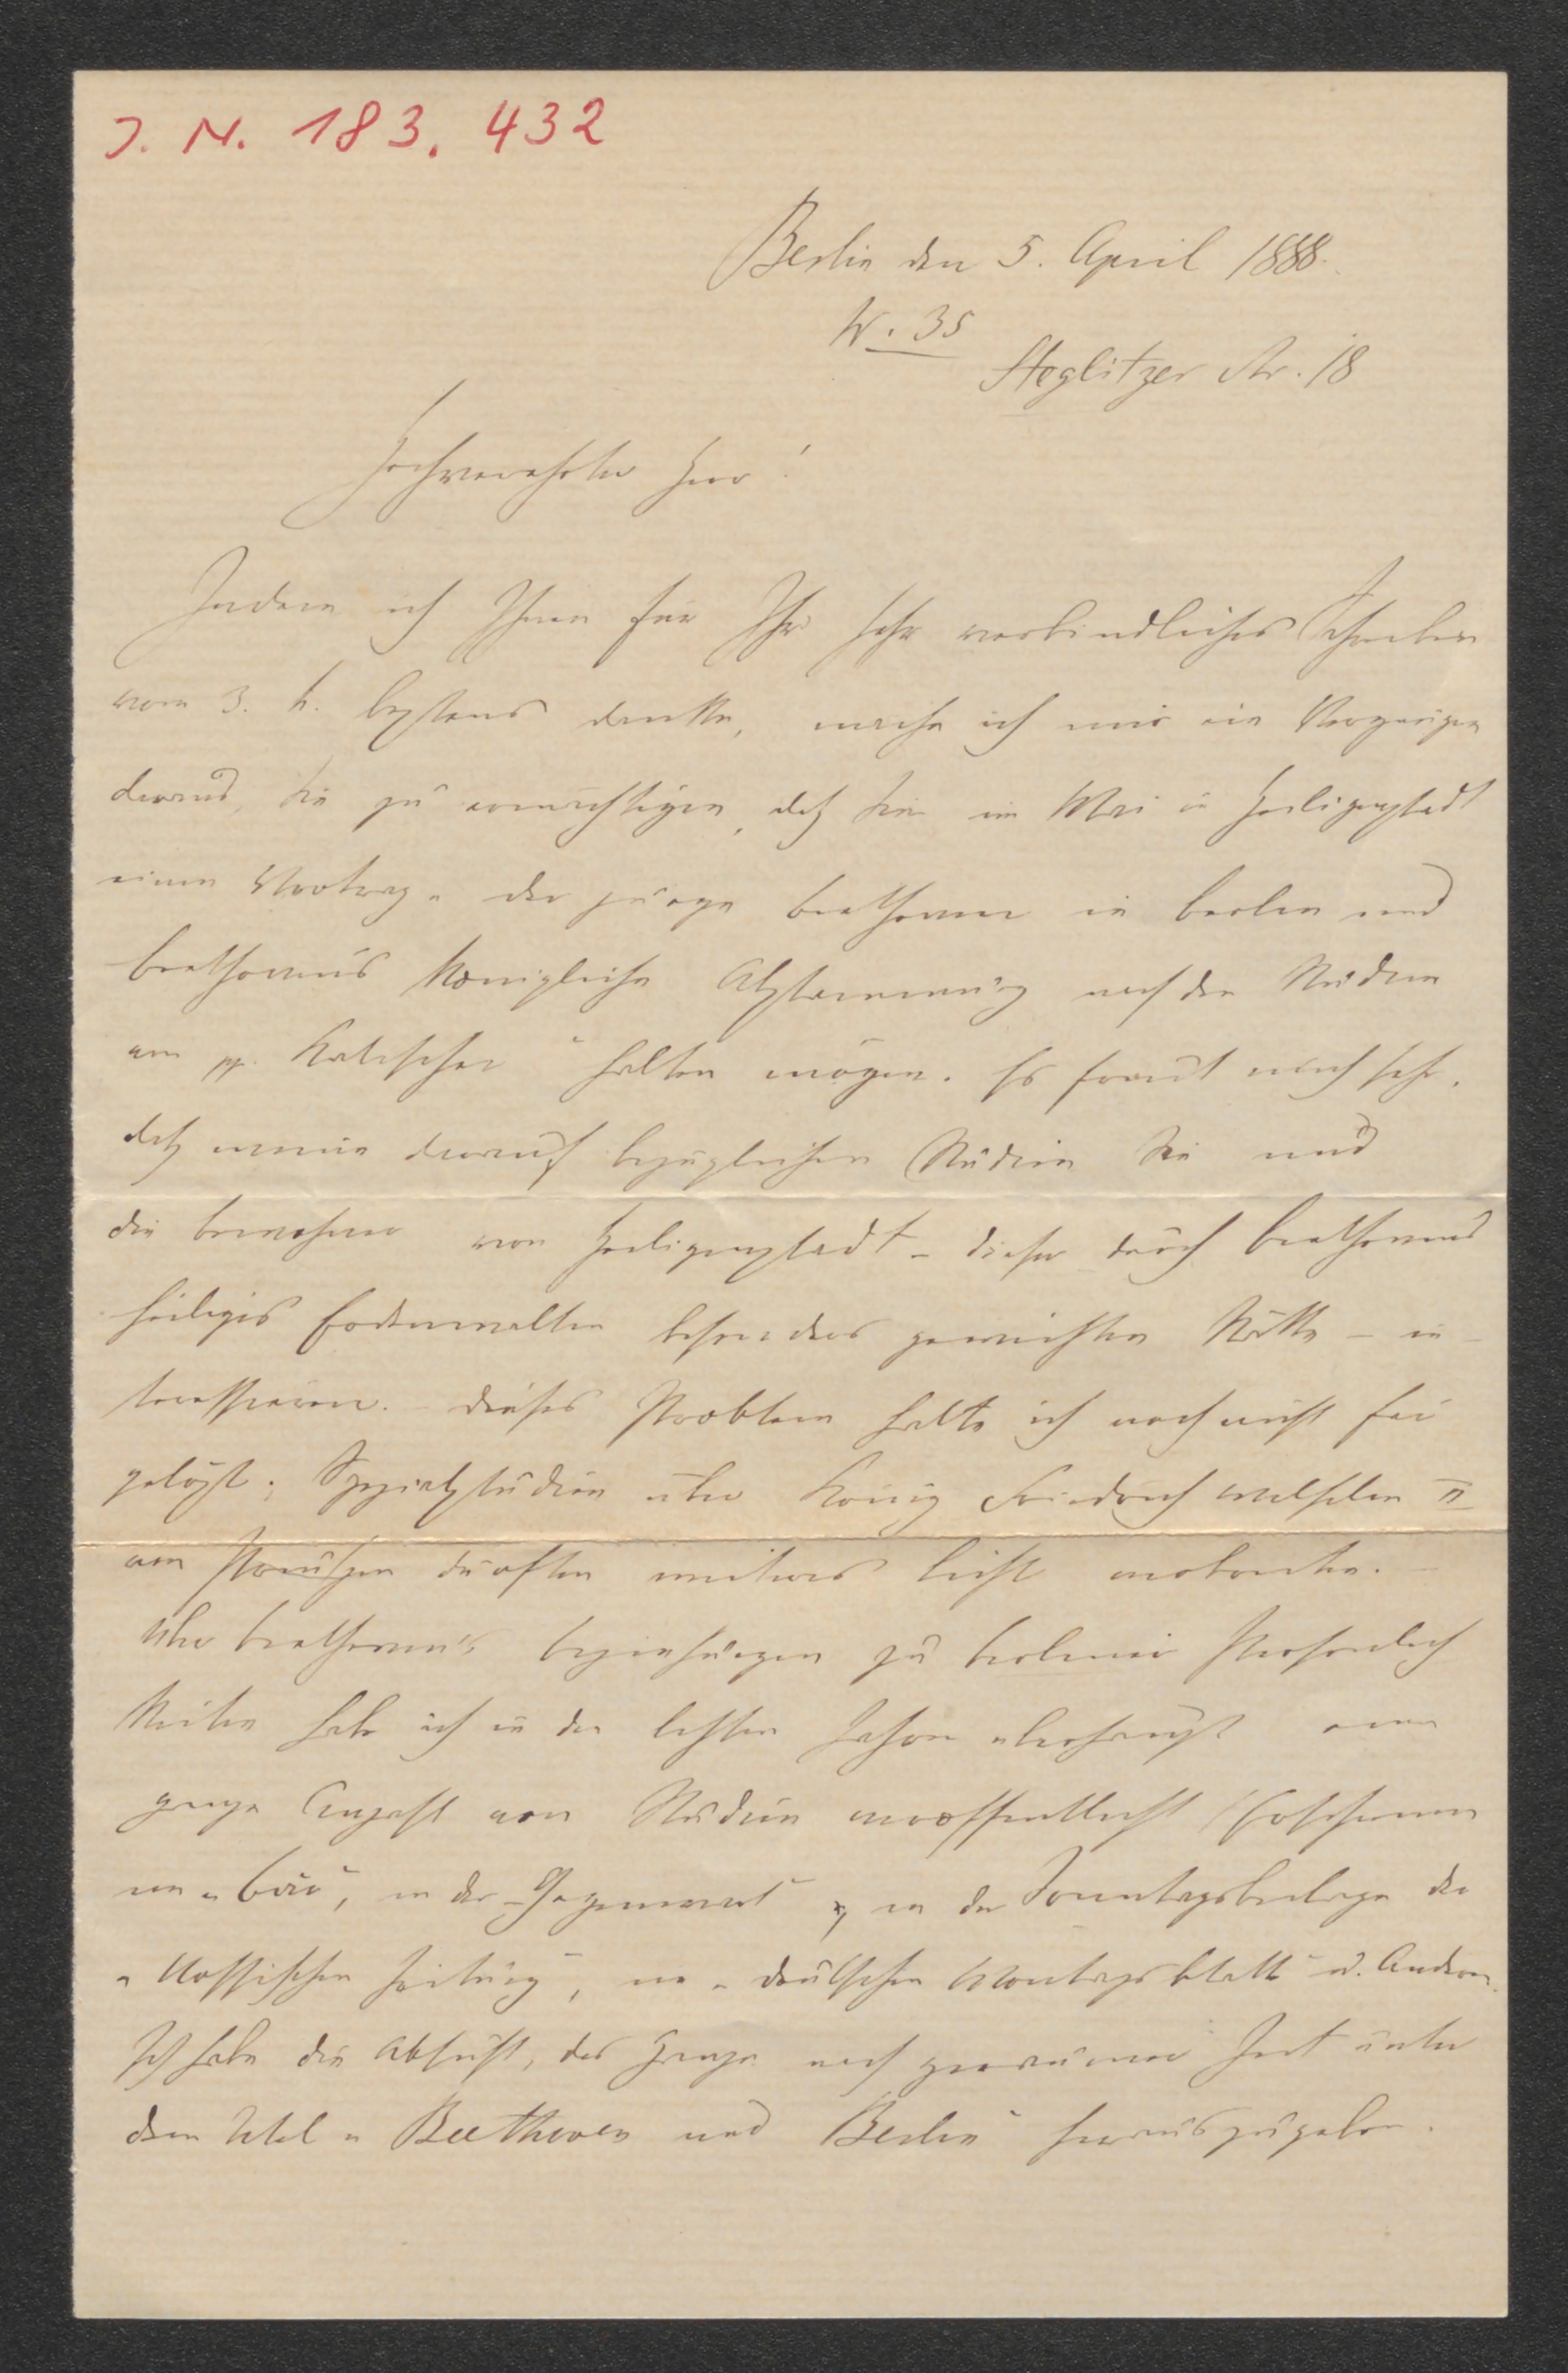 J. N. 183. 432
Berlin den 5. April 1888.
W. 35
Steglitzer Str. 18
Hochverehrter Herr!
Indem ich Ihnen für Ihr sehr verbindliches Schreiben
vom 3. h. bestens danke, mache ich mir ein Vergnügen
daraus, Sie zu ermächtigen, daß Sie im Mai in Heiligenstadt
einen Vortrag „ der junge Beethoven in Berlin und
Beethovens Königliche Abstammung nach den Studien
von Kalischer “ halten mögen. Es freut mich sehr,
daß meine darauf bezüglichen Studien Sie und
die Bewohner von Heiligenstadt – dieser durch Beethovens
heiliges Erdenwallen besonders geweihten Stätte – in-
teressieren. – Dieses Problem halte ich noch nicht für
gelöst; Spezialstudien über König Friedrich Wilhelm II
von Preußen dürften weiteres Licht verbreiten. –
Über Beethoven's Beziehungen zu Berliner Persönlich
keiten habe ich in den letzten Jahren überhaupt eine
ganze Anzahl von Studien veröffentlicht (Erschienen
im „Bär“, in der „Gegenwart“, in der Sonntagsbeilage der
„Vossischen Zeitung“, im „Deutschen Montagsblatt“ u. Andern.
Ich habe die Absicht, das Ganze nach geraumer Zeit unter
dem Titel „Beethoven und Berlin“ herauszugeben.